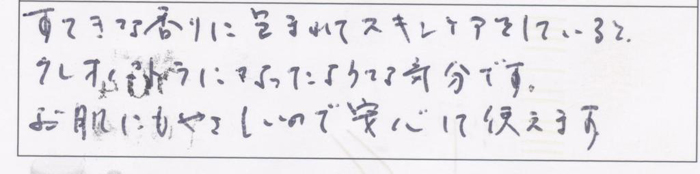 すてきな香りに包まれてスキンケアをしていると、
クレオパトラになったような気分です。
お肌にもやさしいので安心して使えます